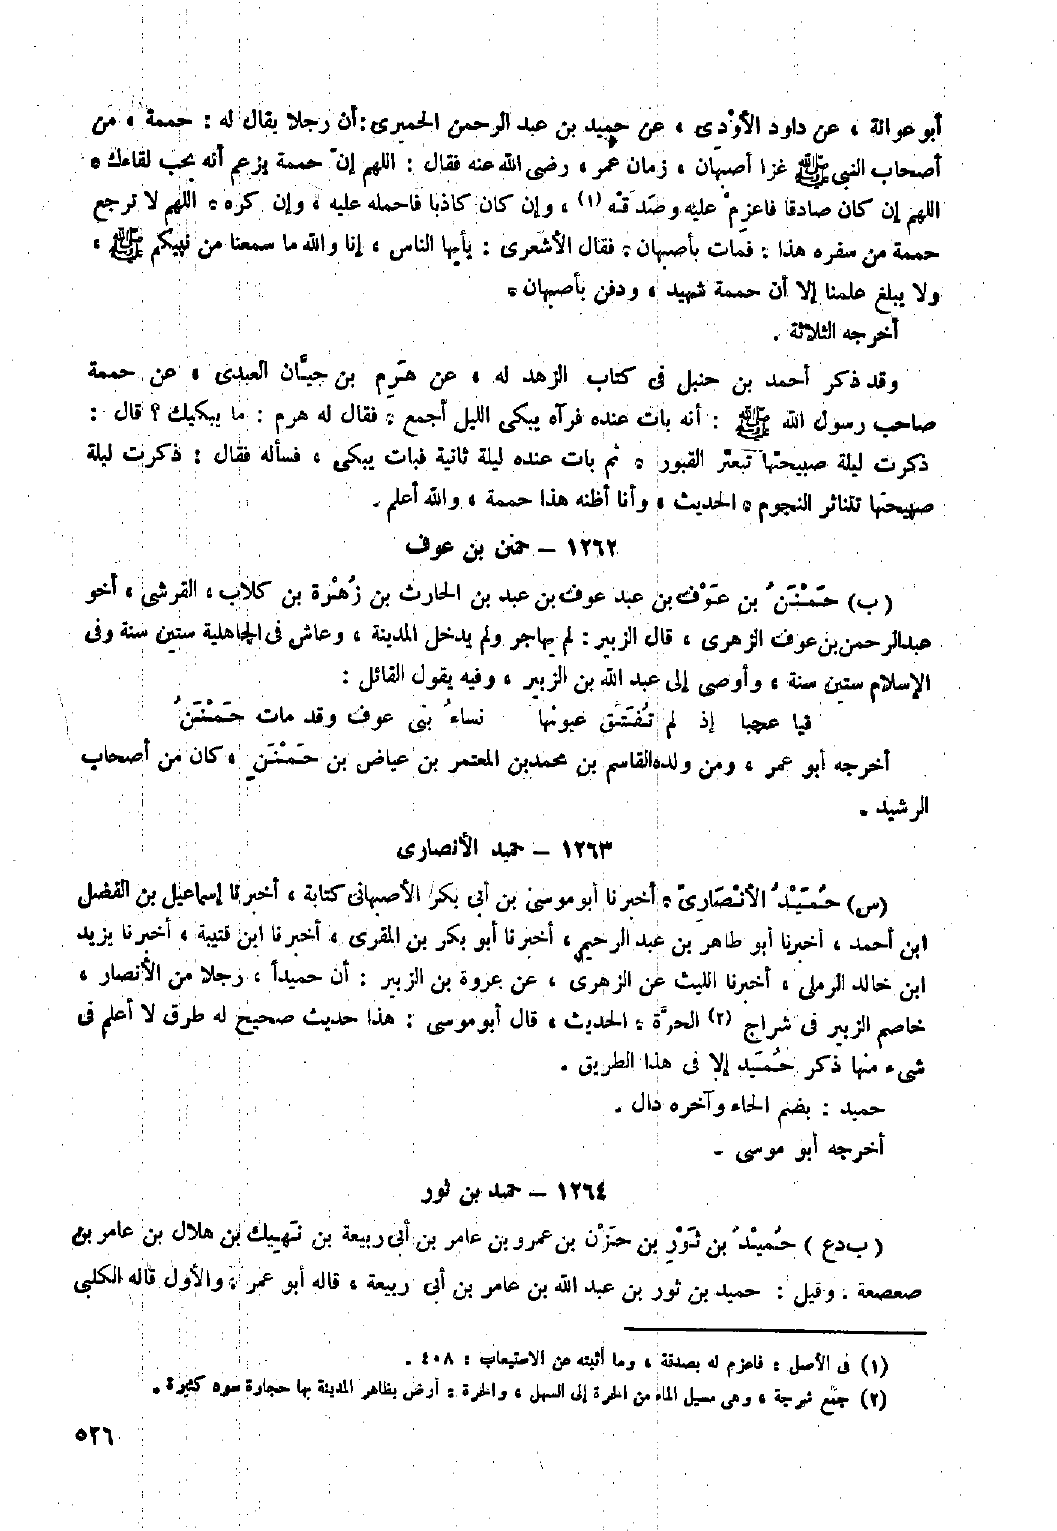 أبو عوانة ، عن داود الأوْدِى ، عن حميد بن عبد الرحمن الحميرى : أن رجلا يقال له : حممة ، من
أصحاب النبى ﷺ غزا أصبهان ، زمان عمر ، رضى الله عنه فقال : اللهم إنّ حممة يزعم أنه يحب لقاءك ،
اللهم إن كان صادقا فاعزِمْ عليه وصَدقته (١) ، وإن كان كاذبا فاحمله عليه ، وإن كره ، اللهم لا ترجع
حممة من سفره هذا : فمات بأصبهان ، فقال الأشعرى : يأيها الناس ، إنا والله ما سمعنا من نبيكم ﷺ ،
ولا يبلغ علمنا إلا أن حممة شهيد ، ودفن بأصبهان .
أخرجه الثلاثة .
وقد ذكر أحمد بن حنبل فى كتاب الزهد له ، عن هَرِم بن حيَّان العبدى ، عن حممة
صاحب رسول الله ﷺ : أنه بات عنده فرآه يبكى الليل أجمع ، فقال له هرم : ما يبكيك ؟ قال :
ذكرت ليلة صبيحتها تبعثر القبور ، ثم بات عنده ليلة ثانية فبات يبكى ، فسأله فقال : ذكرت ليلة
صبيحتها تتناثر النجوم ، الحديث ، وأنا أظنه هذا حممة ، والله أعلم .
١٢٦٢ – حمنن بن عوف
( ب ) حَمْنَنُ بن عَوْف بن عبد عوف بن عبد بن الحارث بن زُهْرة بن كلاب ، القرشى ، أخو
عبد الرحمن بن عوف الزهرى ، قال الزبير : لم يهاجر ولم يدخل المدينة ، وعاش فى الجاهلية ستين سنة وفى
الإسلام ستين سنة ، وأوصى إلى عبد الله بن الزبير ، وفيه يقول القائل :
فيا عجبا إذ لم تُفتَتق عيونها نساءُ بنى عوف وقد مات حَمْنَنُ
أخرجه أبو عمر ، ومن ولده القاسم بن محمد بن المعتمر بن عياض بن حَمْنَنِ ، كان من أصحاب
الرشيد .
١٢٦٣ – حميد الأنصارى
(س) حُمَيْدُ الأنْصَارِىّ ، أخبرنا أبو موسى بن أبى بكر الأصبهانى كتابة ، أخبرنا إسماعيل بن الفضل
ابن أحمد ، أخبرنا أبو طاهر بن عبد الرحيم ، أخبرنا أبو بكر بن المقرى ، أخبرنا ابن قتيبة ، أخبرنا يزيد
ابن خالد الرملى ، أخبرنا الليث عن الزهرى ، عن عروة بن الزبير : أن حميداً ، رجلا من الأنصار ،
خاصم الزبير فى شراج (٢) الحرَّة ، الحديث ، قال أبو موسى : هذا حديث صحيح له طرق لا أعلم فى
شىء منها ذكر حُمَيد إلا فى هذا الطريق .
حميد : بضم الحاء وآخره دال .
أخرجه أبو موسى .
١٢٦٤ – حميد بن ثور
( ب د ع ) حُميْدُ بن ثَوْرِ بن حَزْن بن عمرو بن عامر بن أبى ربيعة بن نَهِيك بن هلال بن عامر بن
صعصعة . وقيل : حميد بن ثور بن عبد الله بن عامر بن أبى ربيعة ، قاله أبو عمر ، والأول قاله الكلبى
(١) فى الأصل : فاعزم له بصدقة ، وما أثبته عن الاستيعاب : ٤٠٨ .
(٢) جمع شرجة ، وهى مسيل الماء من الحرة إلى السهل ، والحرة : أرض بظاهر المدينة بها حجارة سود كثيرة .
٥٣٦